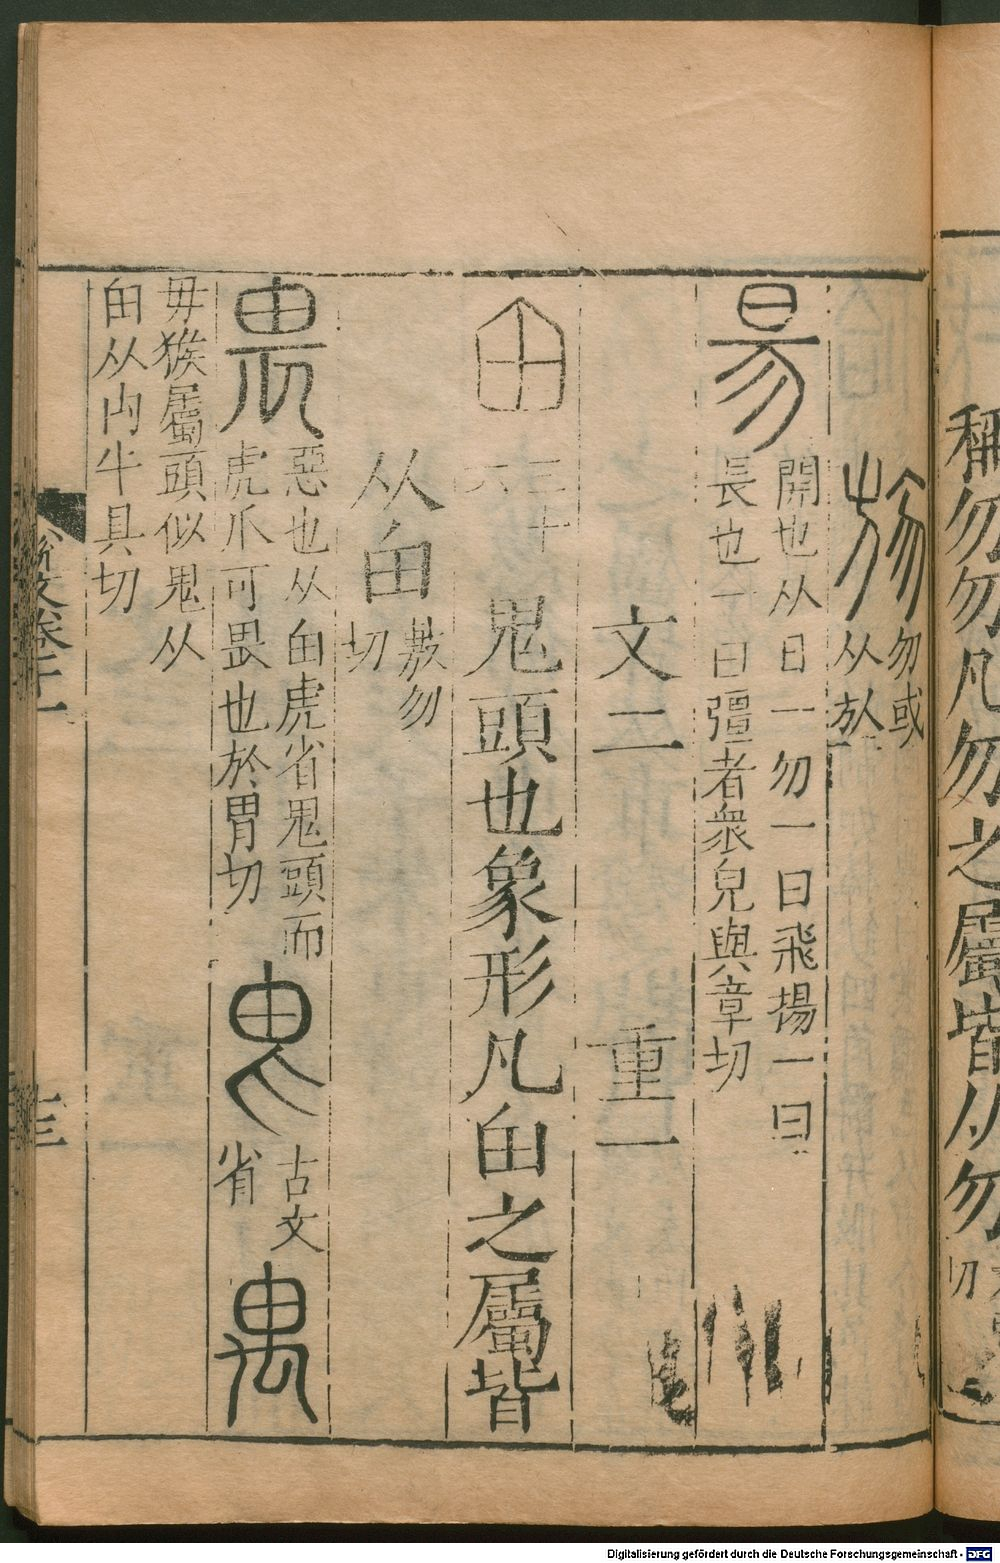 稱勿勿凡勿之屬皆从勿
切
㫃
勿或
从㫃
昜
開也从日一勿一曰飛揚一曰
長也一曰彊者衆皃與章切
文二
重一
甶
三十
六
鬼頭也象形凡甶之屬皆
从甶
敷勿
切
畏
惡也从甶虎省鬼頭而
虎爪可畏也於胃切
古文
省
禺
毋猴屬頭似鬼从
甶从禸牛具切
說文卷十一
十三
Digitalisierung gefördert durch die Deutsche Forschungsgemeinschaft - DFG